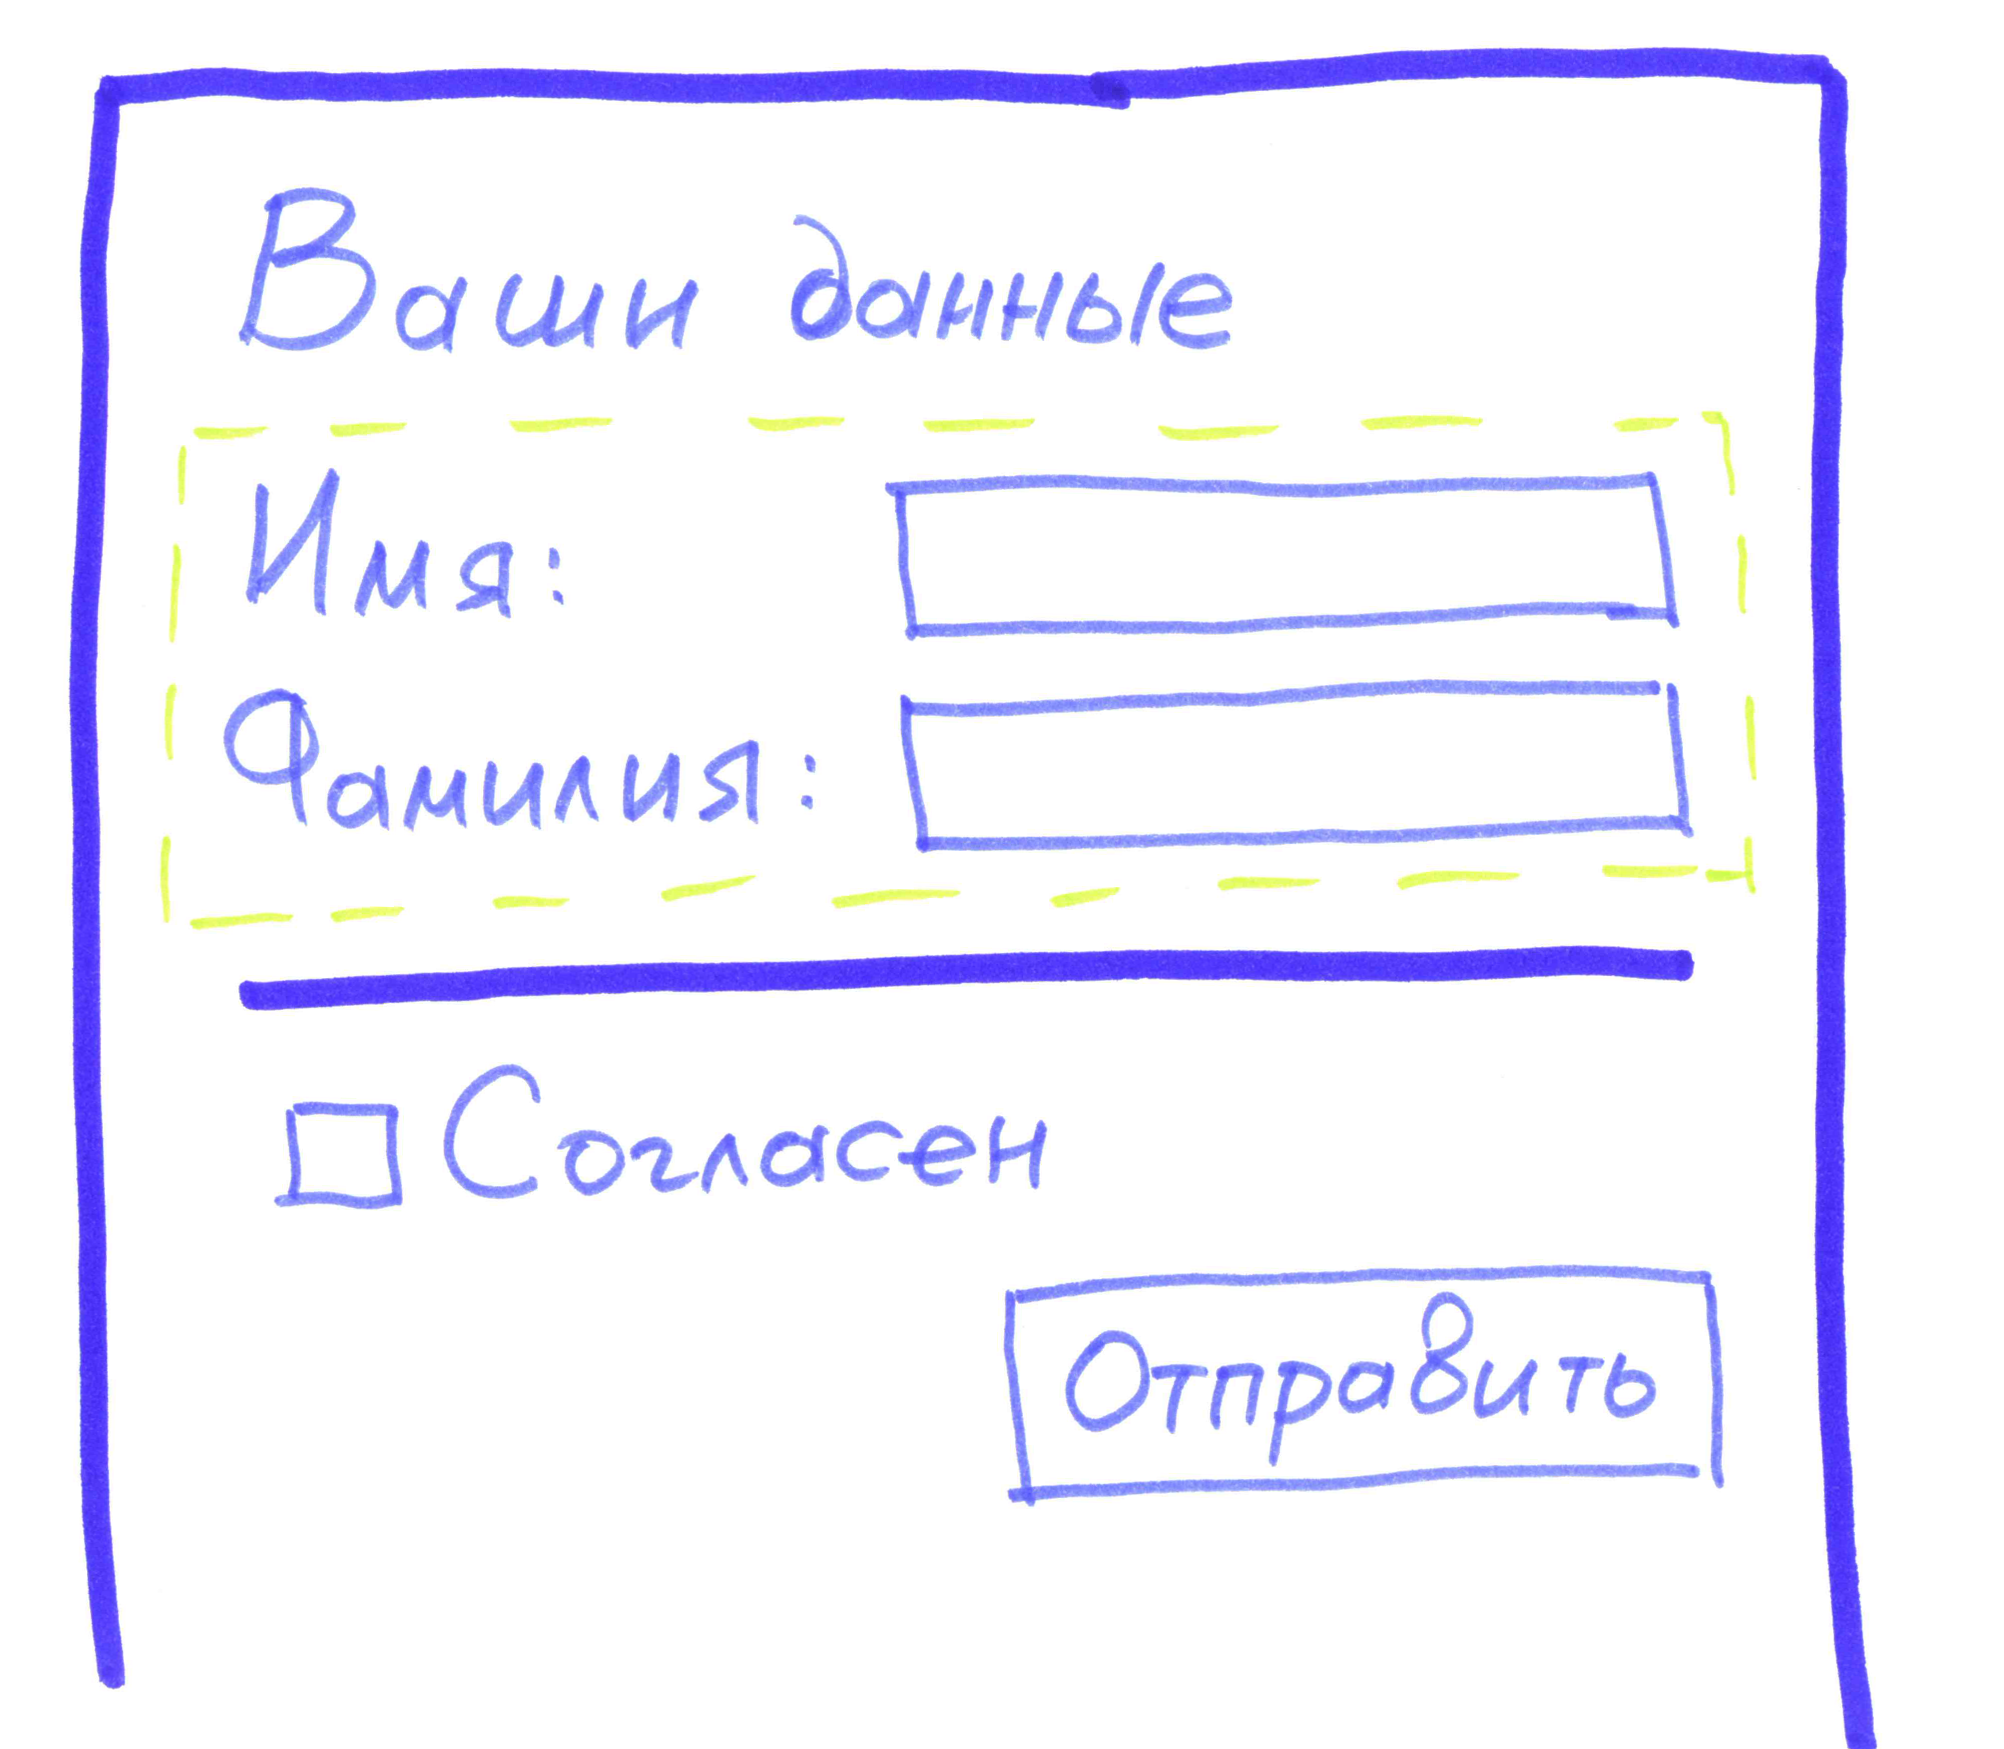 Ваши данные
Имя:
Фамилия:
Согласен
Отправить